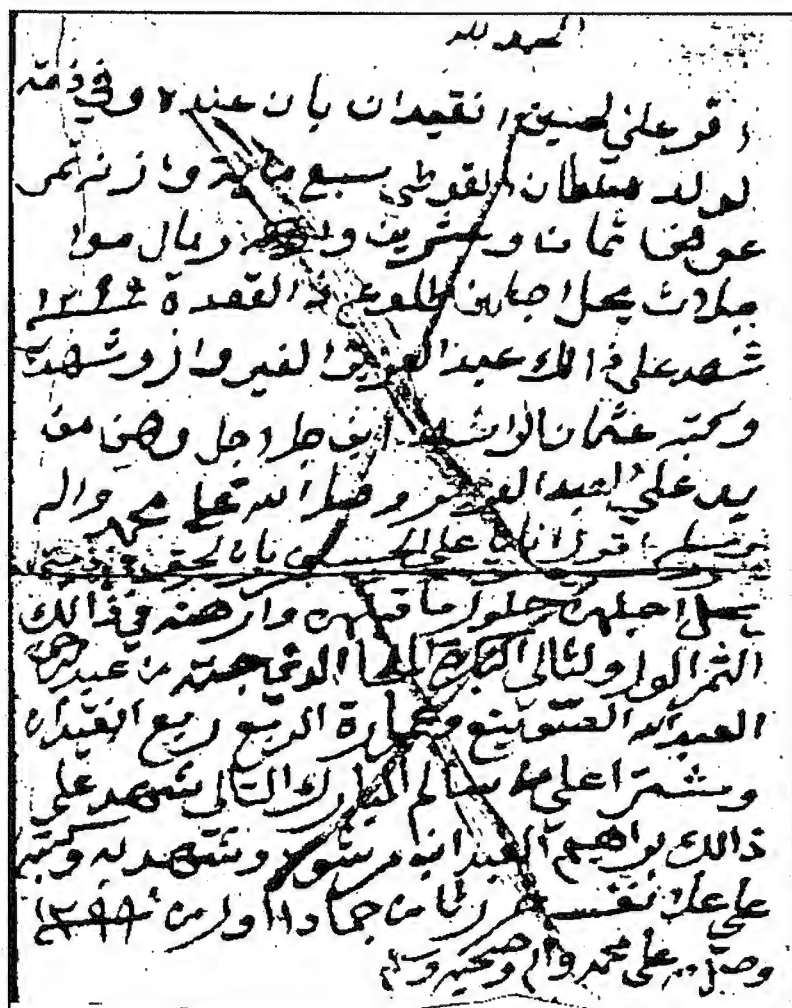 الحمد لله
اقر علي لحسين النقيدان بان عنده وفي ذمته
لولد سلطان القوطي سبع ماية وازنة تمر
عوضها ثمان وعشرين ريال موا
جلات يحل اجلهن طلوع ذ القعدة ١٢٩٤
شهد على ذالك عبد العزيز الفيرواز وشهدت
وكتبه عثمان الراشد ابن جلاجل وهن من
يد علي العبد العزيز وصل الله على محمد واله
وسلم اقر لنا علي الحسين بان الحق في ذمتي
يحل اجلهن حلول ما قبلهن وارهنه في ذالك
الثمر الوا والتالي البكرة الملحا الذي جته من عبد
العبد الله الصوينع وعمارة الربع ربع النقيدان
ومشترا علي من سالم المبارك التالي شهد على
ذالك براهيم العبد الله وشهد به وكتبه
علي نفسه حرر لثامن جمادا اول من ١٢٩٩
وصل الله على محمد واله وصحبه وسلم